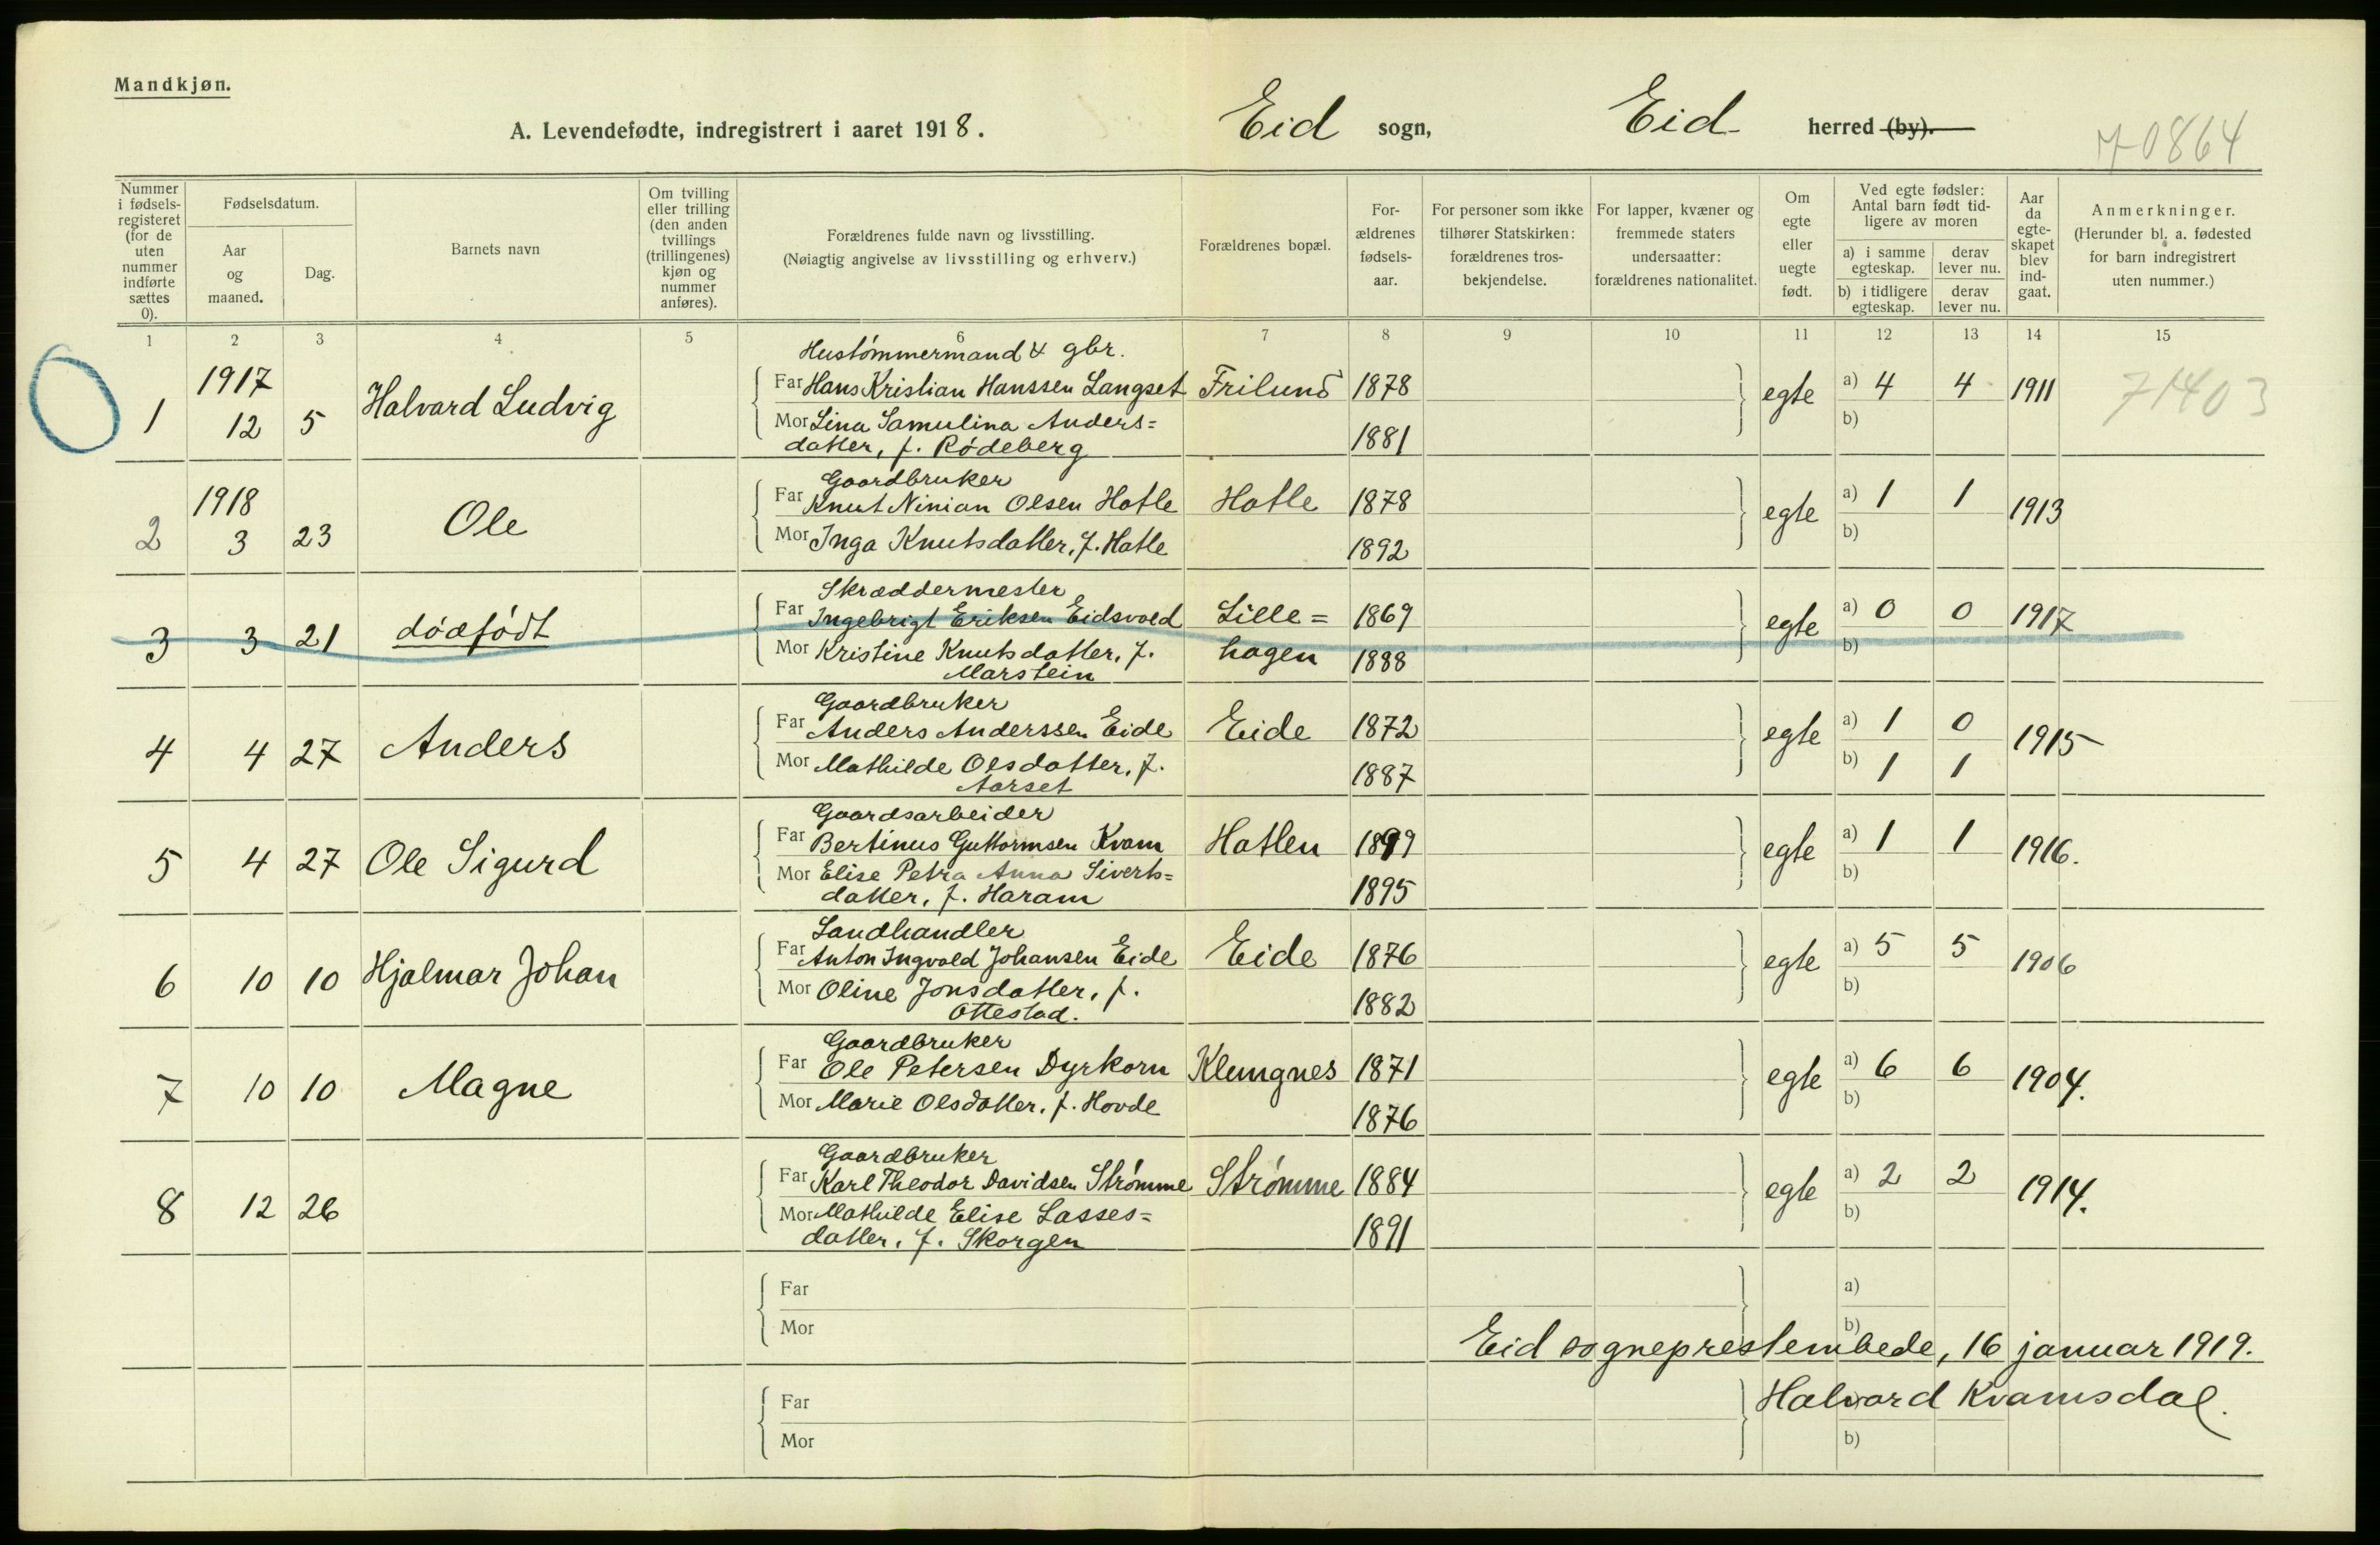 Mandkjøn.
A. Levendefødte, indregistrert i aaret 1918.
Eid sogn, Eid herred (by).
70864
Nummer i fødselsregisteret (for de uten nummer indførte sættes 0).
Fødselsdatum.
Aar og maaned.
Dag.
Barnets navn
Om tvilling eller trilling (den anden tvillings (trillingenes) kjøn og nummer anføres).
Forældrenes fulde navn og livsstilling.
(Nøiagtig angivelse av livsstilling og erhverv.)
Forældrenes bopæl.
Forældrenes fødselsaar.
For personer som ikke tilhører Statskirken: forældrenes trosbekjendelse.
For lapper, kvæner og fremmede staters undersaatter: forældrenes nationalitet.
Om egte eller uegte født.
Ved egte fødsler: Antal barn født tidligere av moren
a) i samme egteskap.
derav lever nu.
b) i tidligere egteskap.
derav lever nu.
Aar da egteskapet blev indgaat.
Anmerkninger.
(Herunder bl. a. fødested for barn indregistrert uten nummer.)
1 2 3 4 5 6 7 8 9 10 11 12 13 14 15
Hustømmermand & gbr.
1917
1 12 5 Halvard Ludvig Far Hans Kristian Hanssen Langset Frilund 1878 egte a) 4 4 1911 71403
Mor Lina Samulina Anders=
datter, f. Rødeberg 1881 b)
Gaardbruker
1918
2 3 23 Ole Far Knut Ninian Olsen Hatle Hatle 1878 egte a) 1 1 1913
Mor Inga Knutsdatter, f. Hatle 1892 b)
Skræddermester
3 3 21 dødfødt Far Ingebrigt Eriksen Eidsvold Lille= 1869 egte a) 0 0 1917
Mor Kristine Knutsdatter, f. hagen 1888 b)
Marstein
Gaardbruker
4 4 27 Anders Far Anders Anderssen Eide Eide 1872 egte a) 1 0 1915
Mor Mathilde Olsdatter, f. 1887 b) 1 1
Aarset
Gaardsarbeider
5 4 27 Ole Sigurd Far Bertinus Guttormsen Kvam Hatlen egte a) 1 1 1916.
Mor Elise Petra Anna Siverts=
datter, f. Haram 1895 b)
Landhandler
6 10 10 Hjalmar Johan Far Anton Ingvald Johansen Eide Eide 1876 egte a) 5 5 1906
Mor Oline Jonsdatter, f. 1882 b)
Ottestad.
Gaardbruker
7 10 10 Magne Far Ole Petersen Dyrkorn Klungnes 1871 egte a) 6 6 1904.
Mor Marie Olsdatter, f. Hovde 1876 b)
Gaardbruker
8 12 26 Far Karl Theodor Davidsen Strømme Strømme 1884 egte a) 2 2 1914.
Mor Mathilde Elise Lasses=
datter, f. Skorgen 1891 b)
Far a)
Mor b)
Eid sogneprestembede, 16 januar 1919.
Far Halvard Kvamsdal.
Mor b)